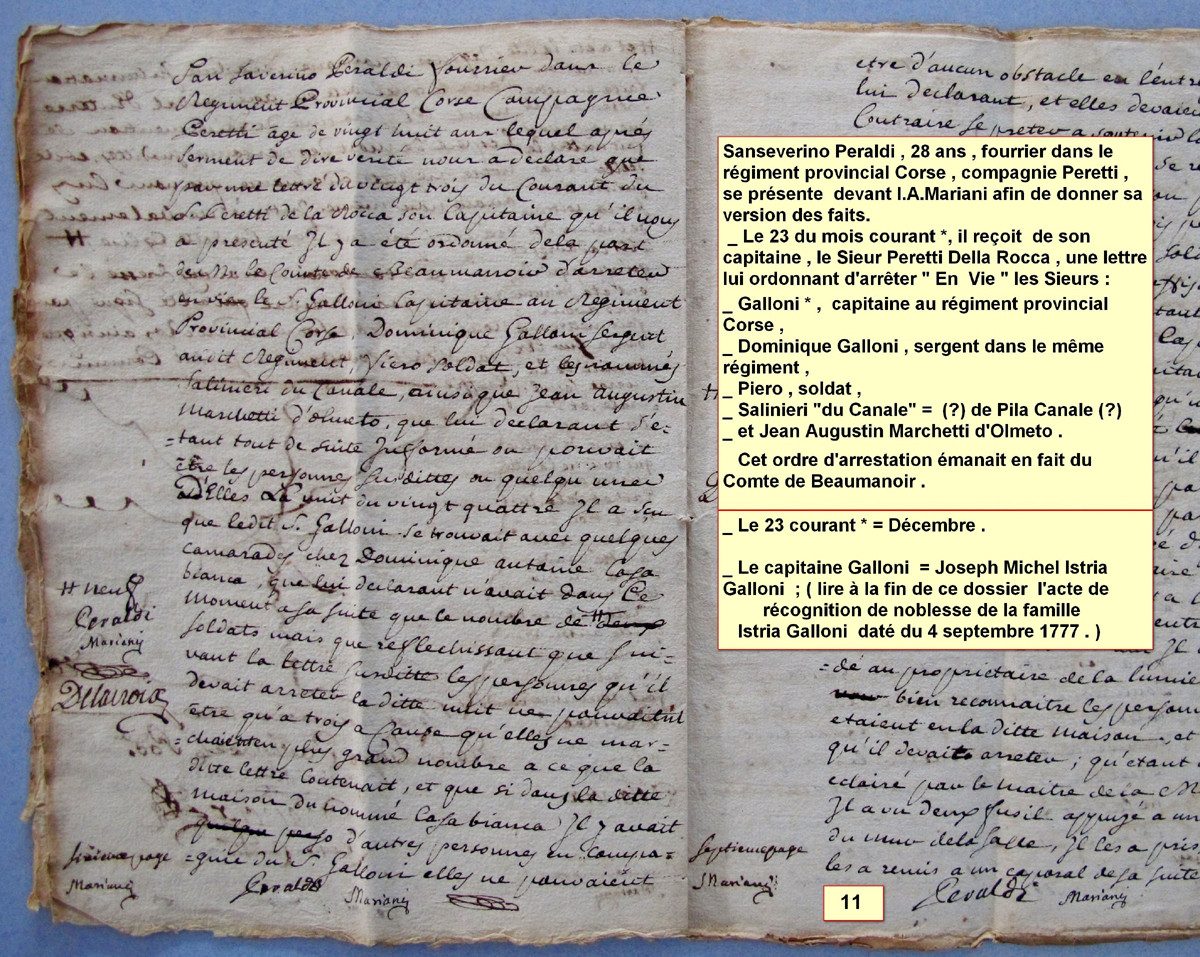 San Saverino Peraldi fourrier dans le
Regiment Provincial Corse Compagnie
Peretti age de vingt huit ans lequel aprés
serment de dire verité nous a declaré que
par une lettre du vingt trois du Courant du
S. Peretti de la Rocca son Capitaine qu'il nous
a presenté Il y a été ordonné de la part
de Mr. le Comte de Beaumanoir d'arreter
en vie le S. Galloni Capitaine au Regiment
Provincial Corse, Dominique Galloni Sergent
audit Regiment, Piero Soldat, et les nommés
Salineri du Canale, ainsi que Jean Augustin
Marchetti d'olmeto, que lui declarant s'é-
=tant tout de suite Informé ou pouvait
être les personnes susdittes ou quelqu'unes
d'Elles La nuit du vingt quattre Il a sçu
que ledit S. Galloni se trouvait avec quelques
camarades chez Dominique antoine Casa
bianca, que lui declarant n'avait dans Ce
moment a sa suite que le nombre de # deux
soldats mais que reflechissant que sui-
vant la lettre susditte les personnes qu'il
devait arreter la ditte nuit ne pouvaitnt
être qu'a trois a Cause qu'elles ne mar-
=chaitnt en plus grand nombre a ce que la
ditte lettre Contenait, et que si dans la ditte
maison du nommé Casabianca Il y avait
quelque perso d'autres personnes en Compa-
=gnie du S. Galloni elles ne pouvaient
# neuf
Peraldi
Mariani
Delacroix
sixieme page
Mariani
Peraldi
Mariani
etre d'aucun obstacle en l'entr
lui declarant, et elles devaien
Contraire se preter a soutenir
Sanseverino Peraldi , 28 ans , fourrier dans le
régiment provincial Corse , compagnie Peretti ,
se présente devant I.A.Mariani afin de donner sa
version des faits.
_ Le 23 du mois courant *, il reçoit de son
capitaine , le Sieur Peretti Della Rocca , une lettre
lui ordonnant d'arrêter " En Vie " les Sieurs :
_ Galloni * , capitaine au régiment provincial
Corse ,
_ Dominique Galloni , sergent dans le même
régiment ,
_ Piero , soldat ,
_ Salinieri "du Canale" = (?) de Pila Canale (?)
_ et Jean Augustin Marchetti d'Olmeto .
Cet ordre d'arrestation émanait en fait du
Comte de Beaumanoir .
_ Le 23 courant * = Décembre .
_ Le capitaine Galloni = Joseph Michel Istria
Galloni ; ( lire à la fin de ce dossier l'acte de
récognition de noblesse de la famille
Istria Galloni daté du 4 septembre 1777 . )
=dé au propriétaire de la lumie
bien reconnaitre les person
etaient en la ditte maison, et
qu'il devait arreter ; qu'étant
eclairé par le maitre de la M
Il a vu deux fusil appuyé a un
du mur de la Salle, Il les a pris
les a remis a un caporal de sa suite
septieme page
Mariani
Peraldi
Mariani
11